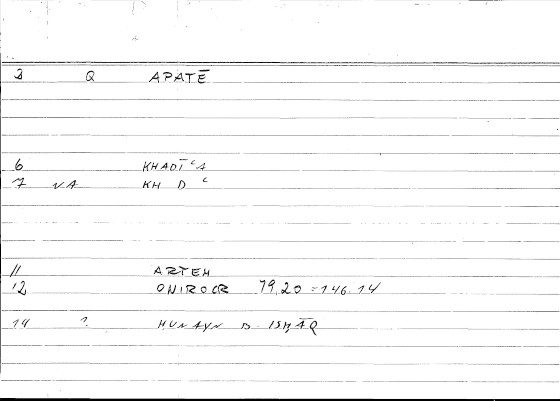 3 Q APATĒ
6 KHADĪʿA
7 NA KH D ʿ
11 ARTEM
12 ONIROCR 79,20 = 146.14
14 ? ḤUNAYN B. ISḤĀQ